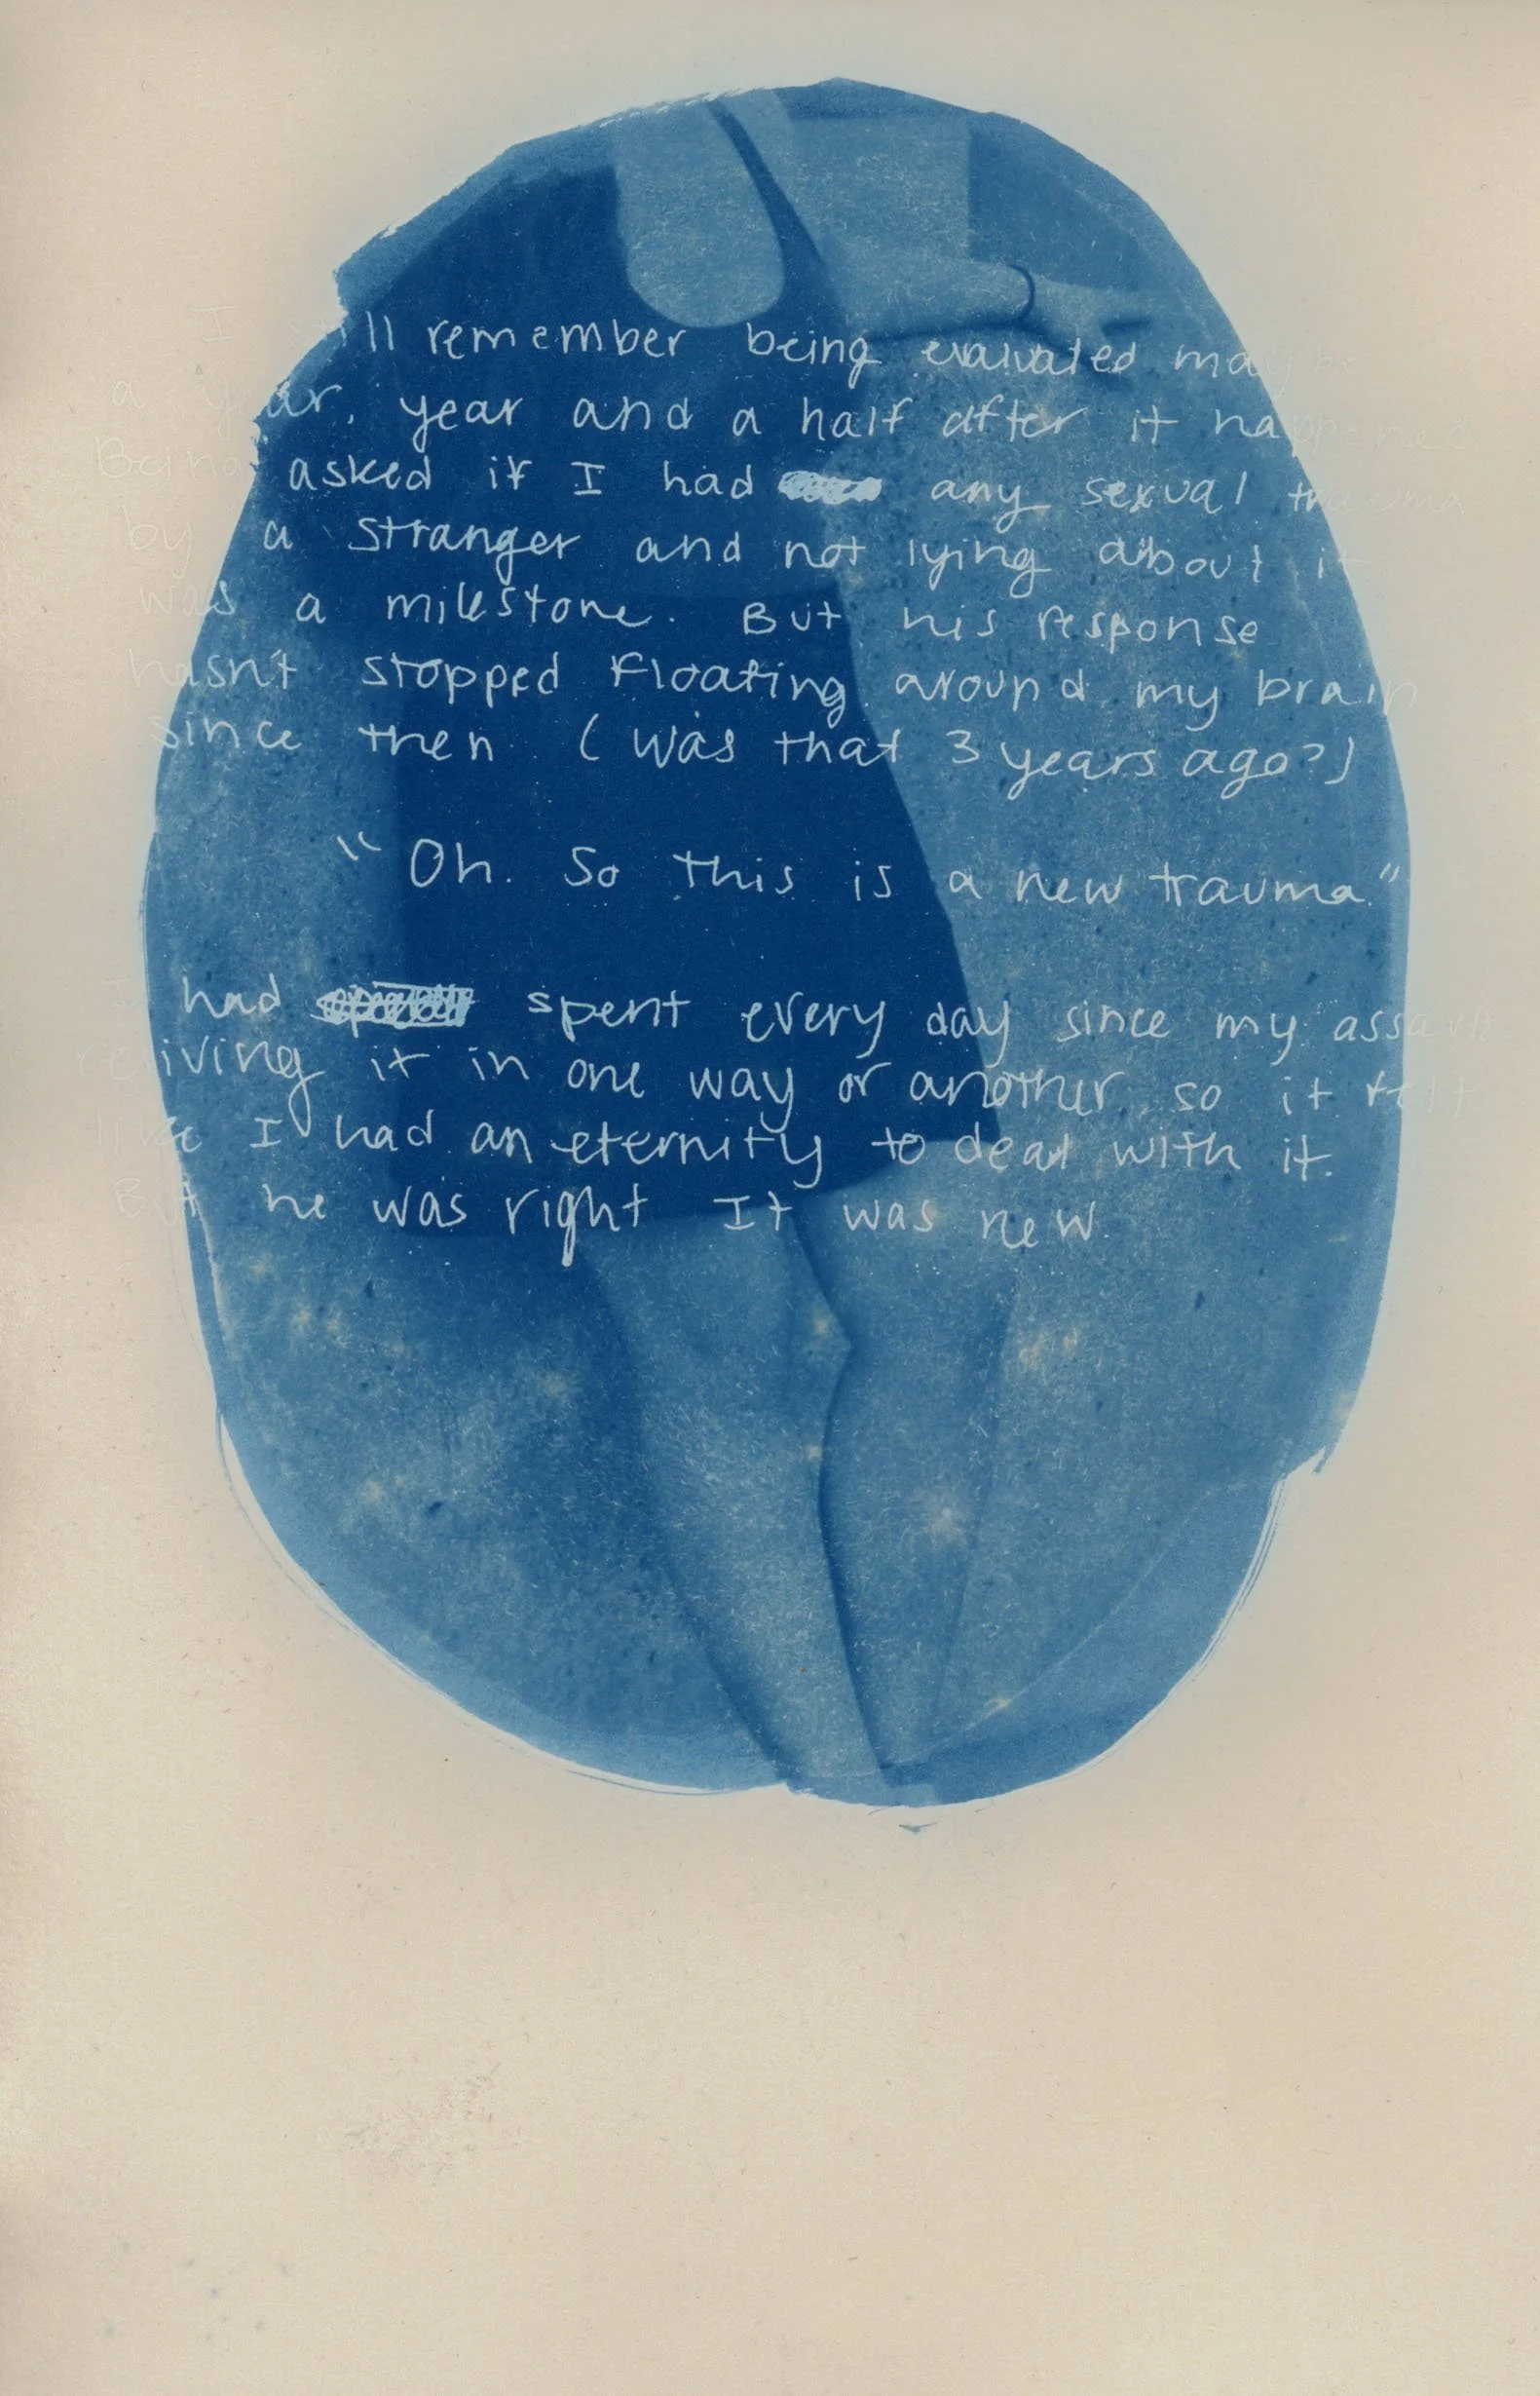 I still remember being evaluated maybe
a year, year and a half after it happened
Being asked if I had any sexual trauma
by a stranger and not lying about it
was a milestone. But his response
hasn't stopped floating around my brain
since then (was that 3 years ago?)
"Oh. So this is a new trauma."
I had spent every day since my assault
reliving it in one way or another so it felt
like I had an eternity to deal with it.
But he was right It was new.